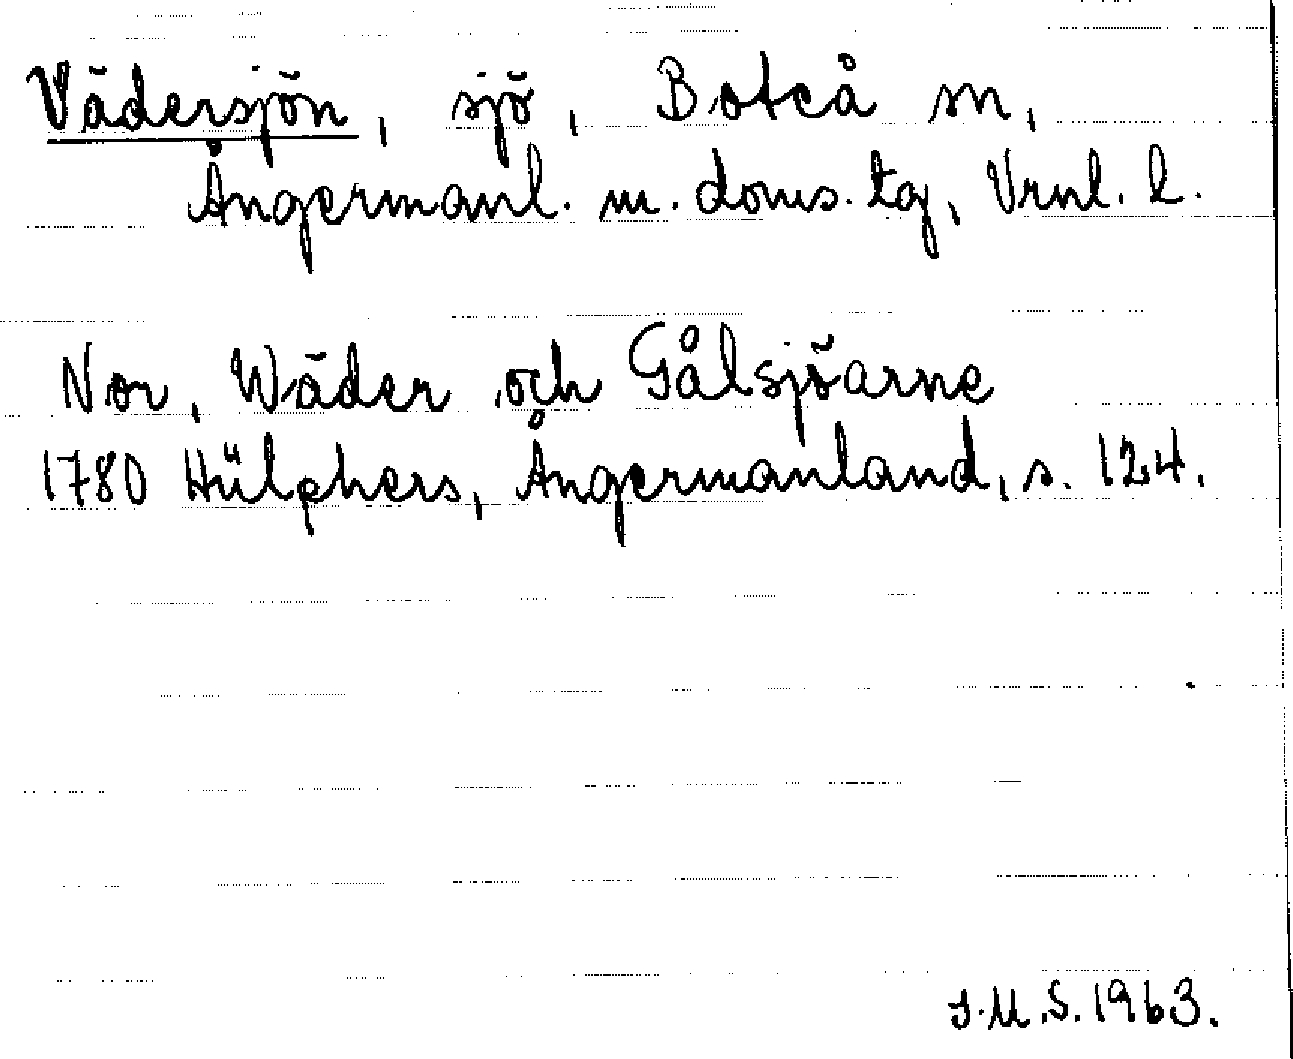 Vädersjön, sjö, Boteå sn,
Ångermanl. m. doms. tg, Vrnl. l.
Nor, Wäder och Gålsjöarne
1780 Hülphers, Ångermanland, s. 124.
I.M.S. 1963.